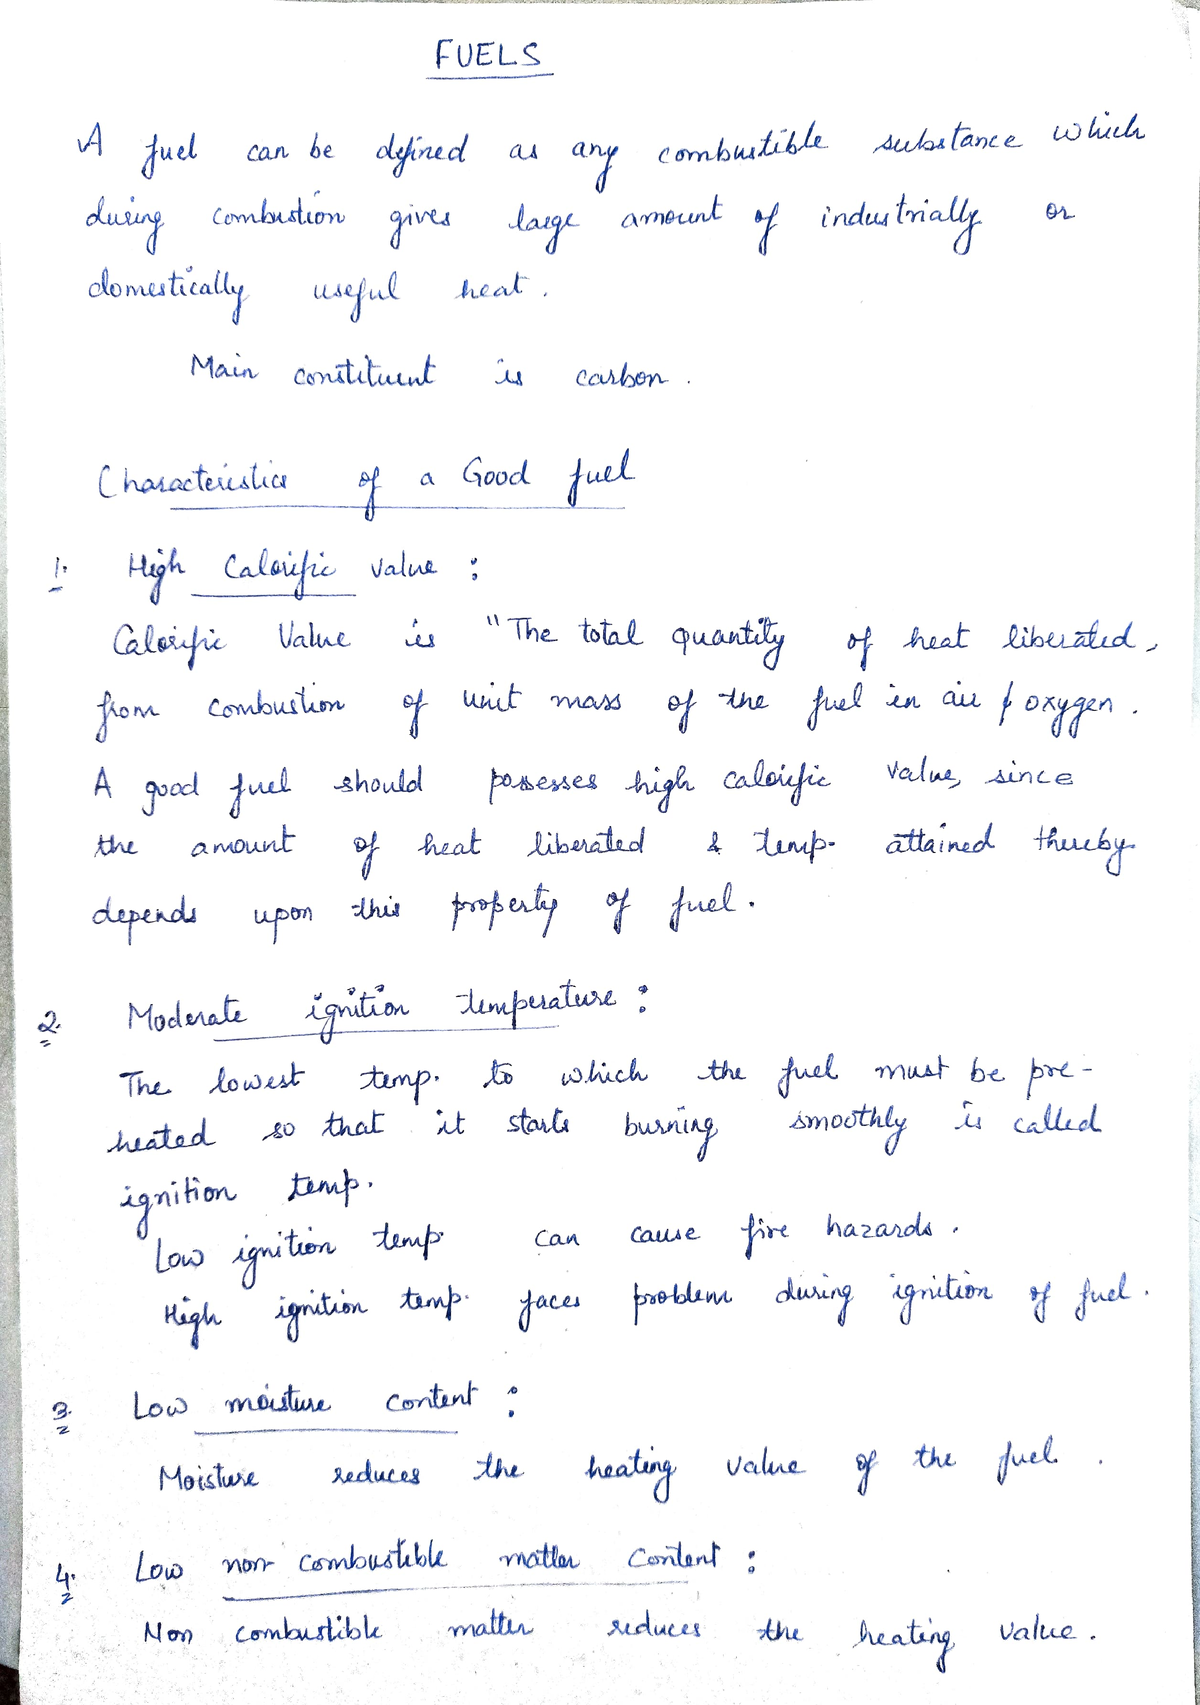 FUELS
A fuel can be defined as any combustible substance which
during combustion gives large amount of industrially or
domestically useful heat.
Main constituent is carbon.
Characteristics of a Good fuel
1. High Calorific value :
Calorific Value is "The total quantity of heat liberated,
from combustion of unit mass of the fuel in air / oxygen.
A good fuel should possesses high calorific value, since
the amount of heat liberated & temp. attained thereby
depends upon this property of fuel.
2. Moderate ignition temperature :
The lowest temp. to which the fuel must be pre-
heated so that it starts burning smoothly is called
ignition temp.
Low ignition temp. can cause fire hazards.
High ignition temp. faces problem during ignition of fuel.
3. Low moisture content :
Moisture reduces the heating value of the fuel.
4. Low non combustible matter content :
Non combustible matter reduces the heating value.